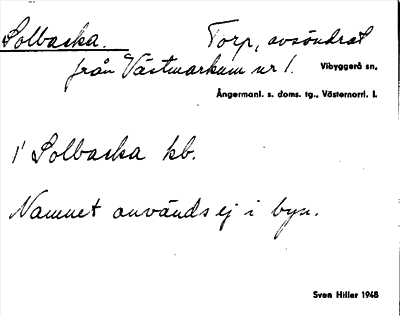 Solbacka. Torp, avsöndrat
från Västmarkum nr 1. Vibyggerå sn,
Ångermanl. s. doms. tg., Västernorrl. l.
1' Solbacka kb.
Namnet användsej i byn.
Sven Hiller 1948